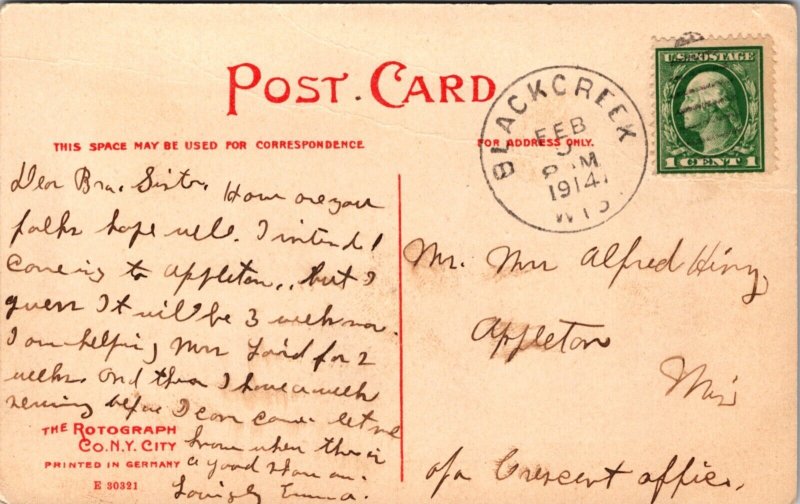 POST CARD
THIS SPACE MAY BE USED FOR CORRESPONDENCE
FOR ADDRESS ONLY.
BLACKCREEK
FEB
M
1914
WIS
U.S. POSTAGE
1 CENT 1
Dear Bro. Sister, How are you
folks hope well. I intend
coming to Appleton, but I
guess It will be 3 weeks now
I am helping Mrs Laird for 2
weeks. And then I have a week
sewing before I can come. let me
know when there is
a good show on.
Lovingly Emma.
THE ROTOGRAPH
CO. N.Y. CITY
PRINTED IN GERMANY
E 30321
Mr. Mrs Alfred
Appleton
Wis
Crescent office.